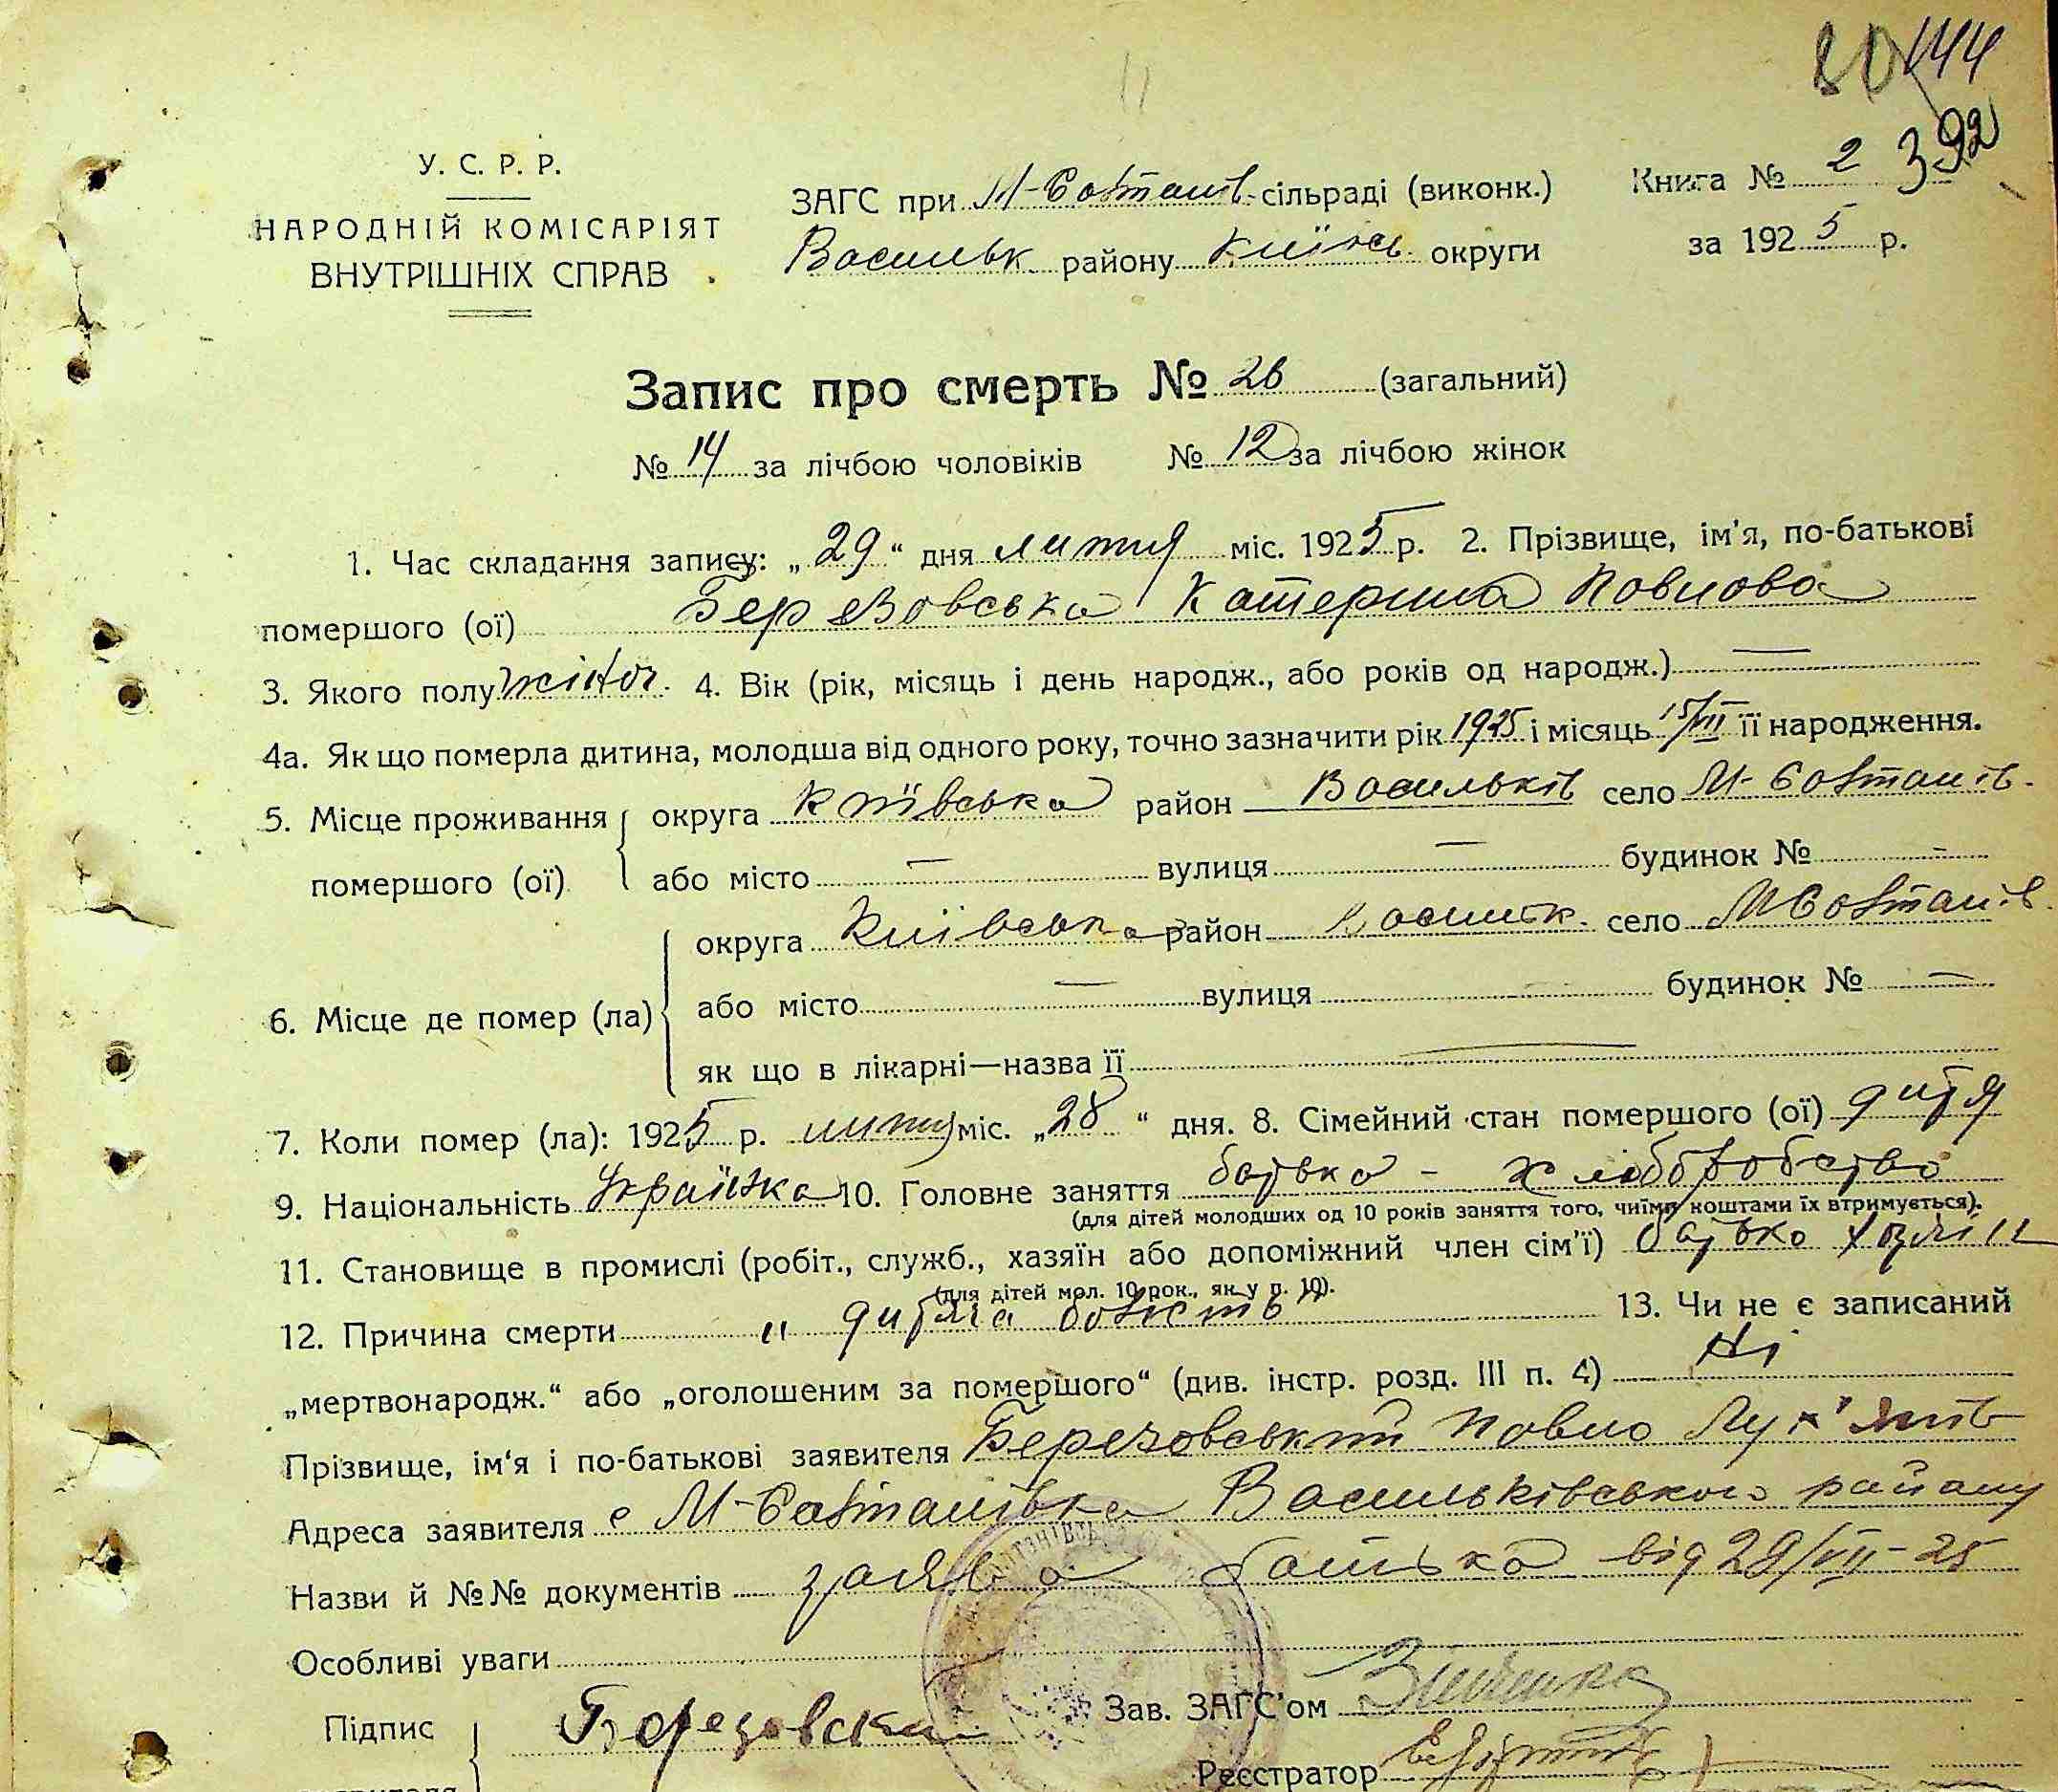 80 144
У. С. Р. Р. ЗАГС при М-Совтанів-сільраді (виконк.) Книга № 2 392
НАРОДНІЙ КОМІСАРІЯТ Васильк району Київсь. округи за 1925 р.
ВНУТРІШНІХ СПРАВ
Запис про смерть № 26 (загальний)
№ 14 за лічбою чоловіків № 12 за лічбою жінок
1. Час складання запису: „29“ дня липня міс. 1925 р. 2. Прізвище, ім'я, по-батькові
помершого (ої) Березовська Катерина Павлова
3. Якого полу жіноч. 4. Вік (рік, місяць і день народж., або років од народж.) —
4а. Як що померла дитина, молодша від одного року, точно зазначити рік 1925 і місяць 15/VII її народження.
5. Місце проживання округа Київська район Васильків село М-Совтанів.
помершого (ої) або місто — вулиця — будинок № -
округа Київська район Васильк. село М Совтанів.
6. Місце де помер (ла) або місто — вулиця — будинок № —
як що в лікарні—назва її —
7. Коли помер (ла): 1925 р. липня міс. „28“ дня. 8. Сімейний стан помершого (ої) дитя
9. Національність Українка 10. Головне заняття батька - хліборобство
(для дітей молодших од 10 років заняття того, чиїми коштами їх втримується).
11. Становище в промислі (робіт., служб., хазяїн або допоміжний член сім'ї) батько хазяїн
(для дітей мол. 10 рок., як у п. 10).
12. Причина смерти „ дитяча болість" 13. Чи не є записаний
„мертвонародж.“ або „оголошеним за помершого“ (див. інстр. розд. III п. 4) Ні
Прізвище, ім'я і по-батькові заявителя Березовський Павло Лук'янів
Адреса заявителя с М-Совтанівка Васильківського району
Назви й №№ документів заява батька від 29/VII-25
Особливі уваги
Підпис Березовски Зав. ЗАГС'ом
Реєстратор